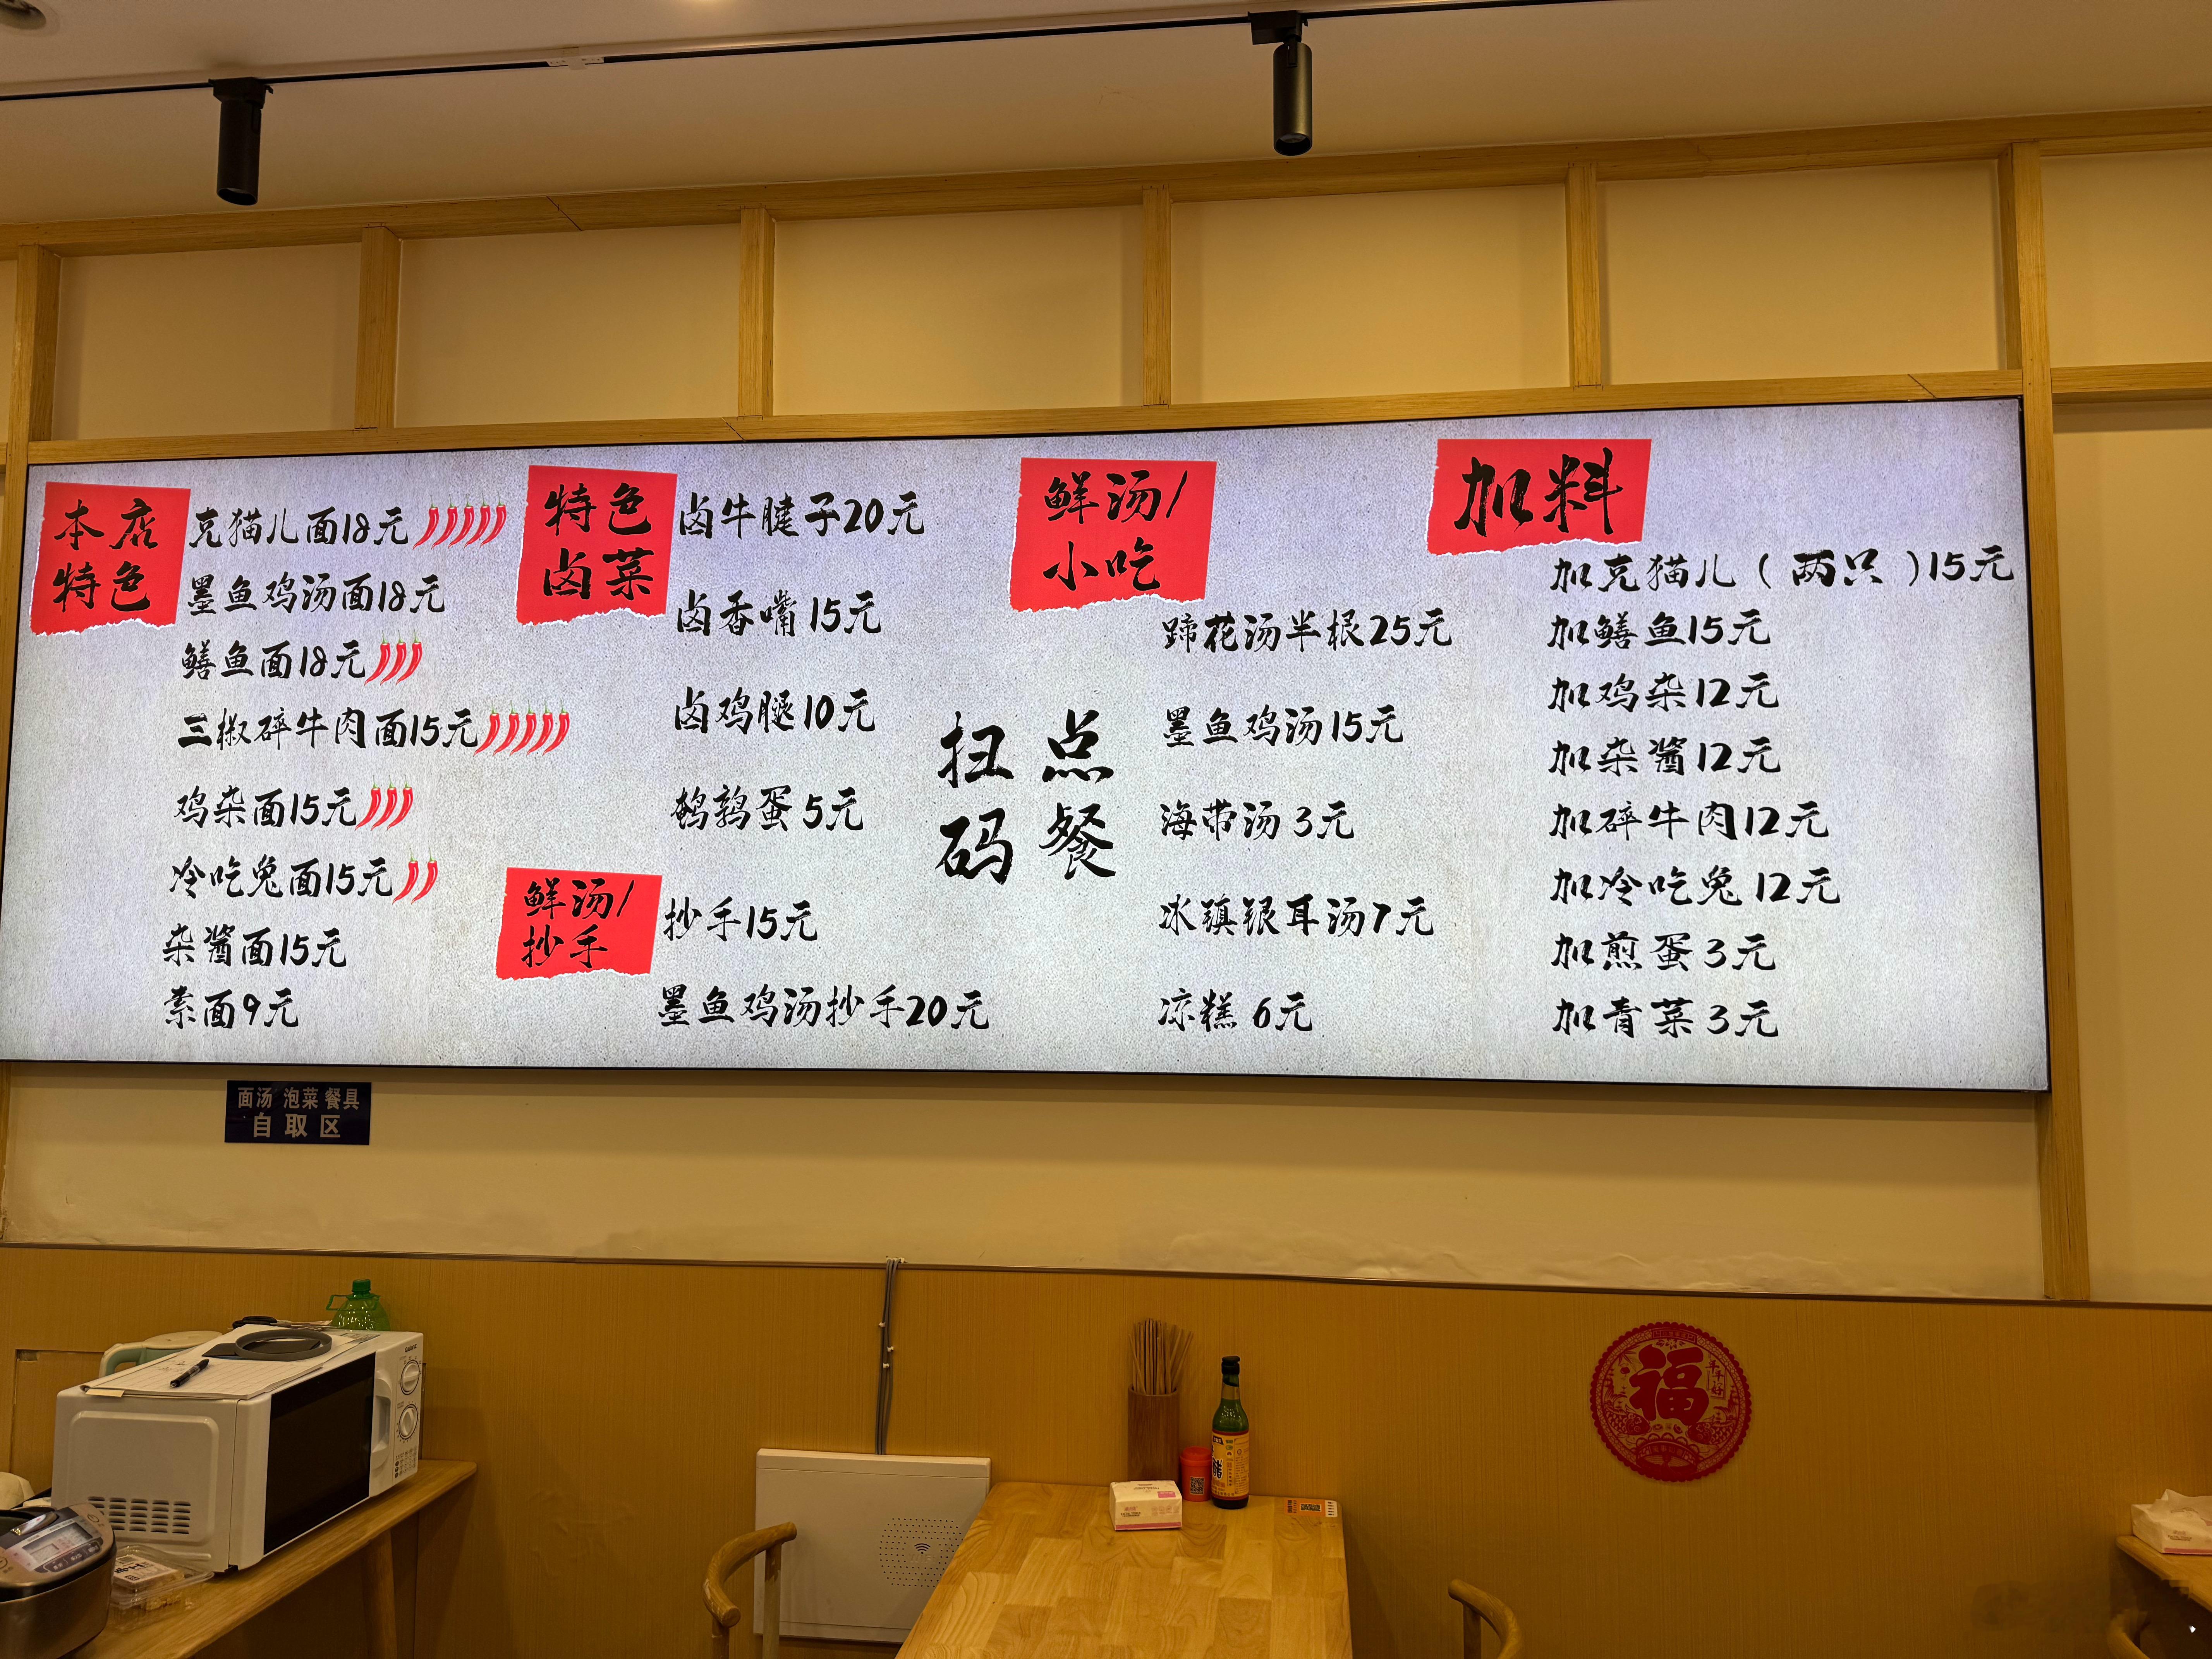 本店
特色
克猫儿面18元
墨鱼鸡汤面18元
鳝鱼面18元
三椒碎牛肉面15元
鸡杂面15元
冷吃兔面15元
杂酱面15元
素面9元
特色
卤菜
卤牛腱子20元
卤香嘴15元
卤鸡腿10元
鹌鹑蛋5元
鲜汤/
抄手
抄手15元
墨鱼鸡汤抄手20元
扫点
码餐
鲜汤/
小吃
蹄花汤半根25元
墨鱼鸡汤15元
海带汤3元
冰镇银耳汤7元
凉糕6元
加料
加克猫儿(两只)15元
加鳝鱼15元
加鸡杂12元
加杂酱12元
加碎牛肉12元
加冷吃兔12元
加煎蛋3元
加青菜3元
面汤 泡菜 餐具
自取区
福